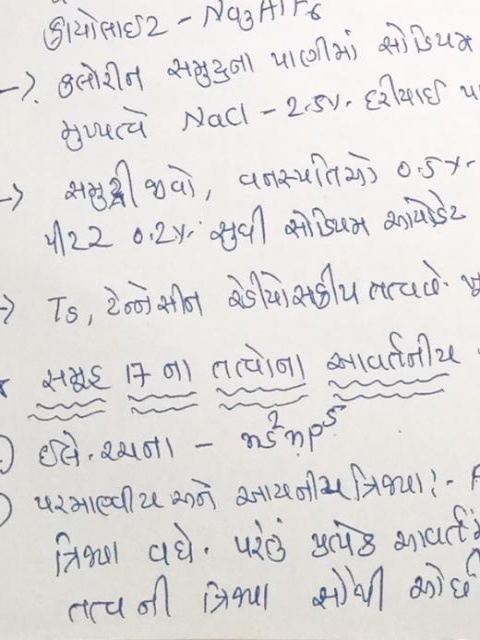 ક્રાયોલાઈટ - Na3AlF6
→ ક્લોરીન સમુદ્રના પાણીમાં સોડિયમ
મુખ્યત્વે NaCl - 2.5%. દરીયાઈ
→ સમુદ્રી જીવો, વનસ્પતિઓ 0.5%.
પીટર 0.2% સુધી સોડિયમ આયોડેટ
→ Ts, ટેન્નેસીન રેડીયોસક્રીય તત્વ છે.
સમૂહ 17 ના તત્વોના આવર્તનીય
ઈલે. રચના - ns2np5
પરમાણ્વીય અને આયનીય ત્રિજ્યા :-
ત્રિજ્યા વધે. પરંતુ પ્રત્યેક આવર્તમાં
તત્વ ની ત્રિજ્યા સૌથી ઓછી